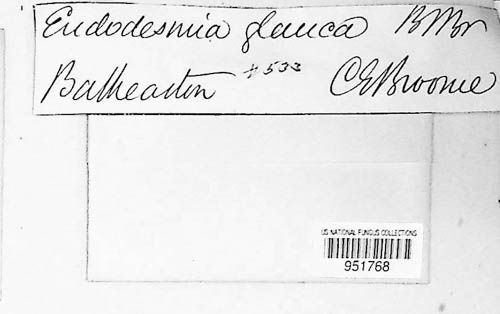 Endodesmia glauca B&Br
Batheaston #533 CEBroome
US NATIONAL FUNGUS COLLECTIONS
951768